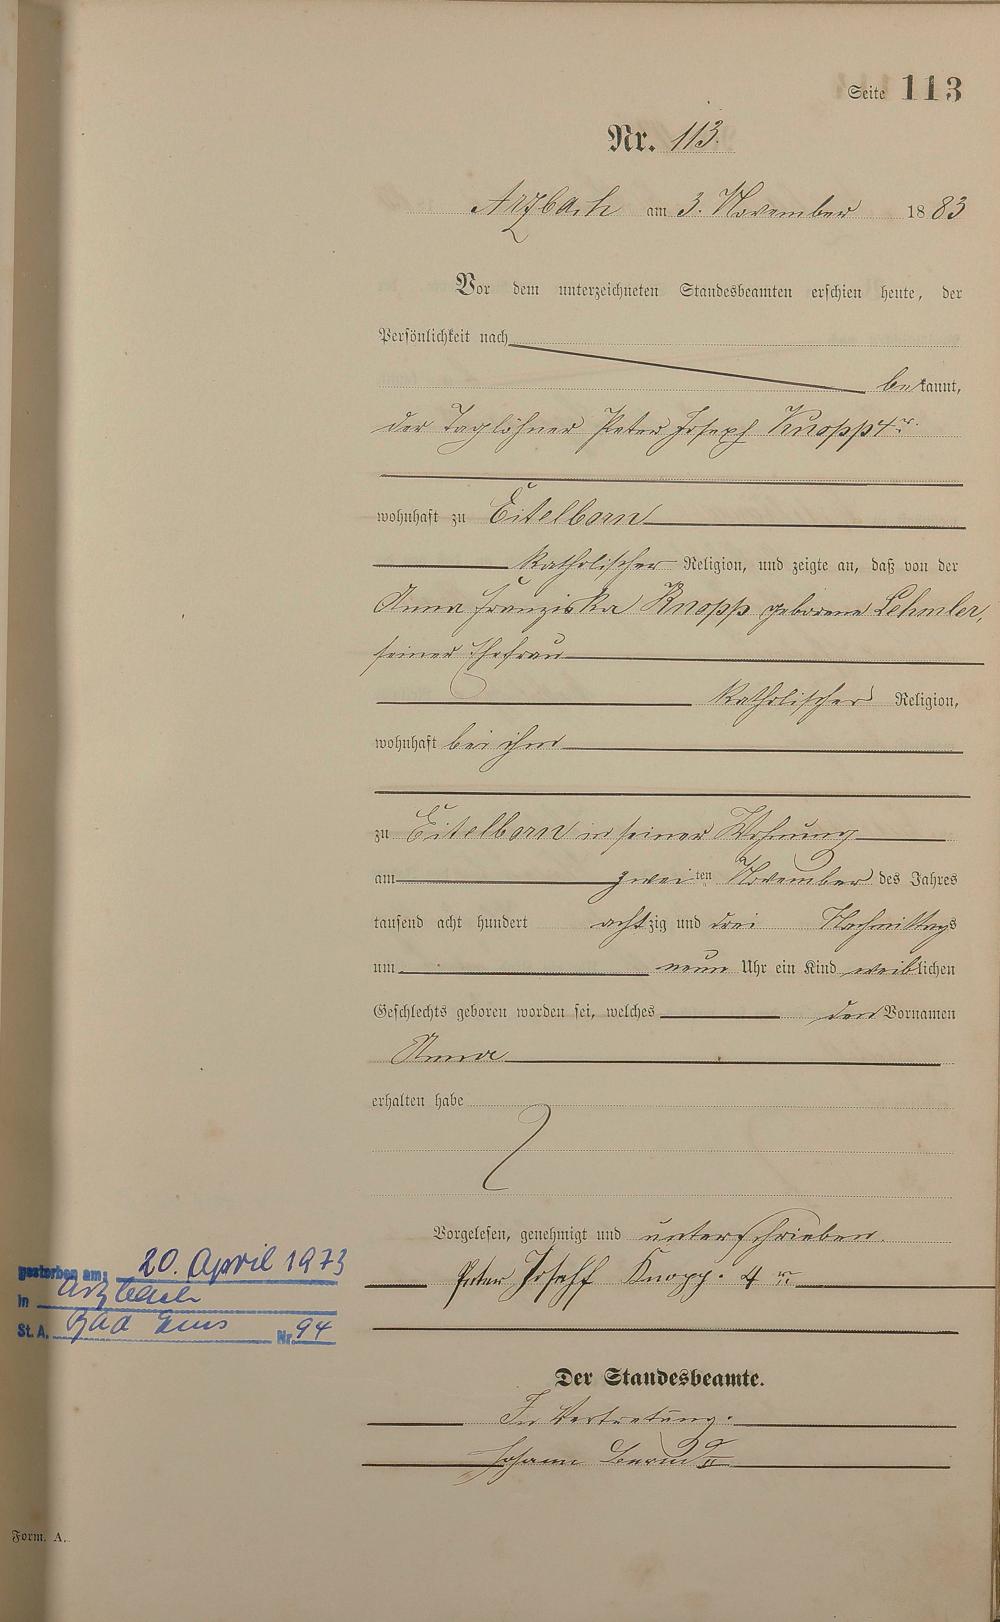 Seite 113
Nr. 113.
Arzbach am 3. November 1883
Vor dem unterzeichneten Standesbeamten erschien heute, der
Persönlichkeit nach
bekannt,
der Taglöhner Peter Joseph Knopp 4r.
wohnhaft zu Eitelborn
katholischer Religion, und zeigte an, daß von der
Anna Franziska Knopp geborene Lehmler,
seiner Ehefrau
katholischer Religion,
wohnhaft bei ihm
zu Eitelborn in seiner Wohnung
am zweiten November des Jahres
tausend acht hundert achtzig und drei Nachmittags
um neun Uhr ein Kind weiblichen
Geschlechts geboren worden sei, welches den Vornamen
Anna
erhalten habe
Vorgelesen, genehmigt und unterschrieben.
Peter Joseff Knopp. 4r.
gestorben am: 20. April 1973
in Arzbach
St. A. Bad Ems Nr. 94
Der Standesbeamte.
In Vertretung.
Johann
Form. A.